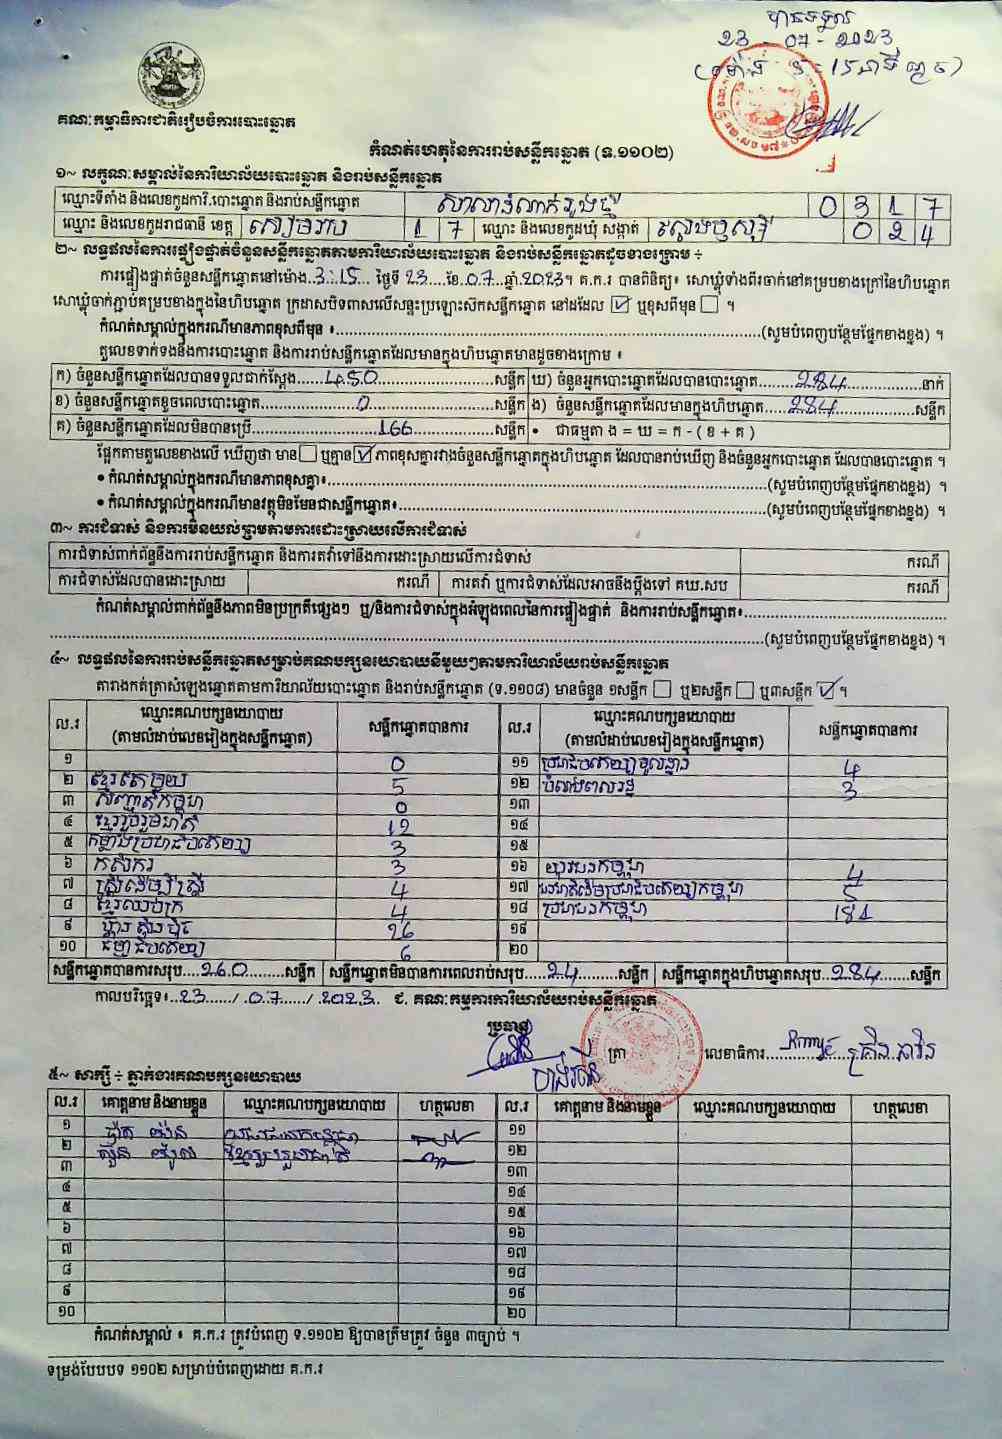 បានទទួល
23 - 07 - 2023
(ម៉ោង 3 - 15 នាទី ល្ងាច)
គណៈកម្មាធិការជាតិរៀបចំការបោះឆ្នោត
កំណត់ហេតុនៃការរាប់សន្លឹកឆ្នោត (ទ.១១០២)
១~ លក្ខណៈសម្គាល់នៃការិយាល័យបោះឆ្នោត និងរាប់សន្លឹកឆ្នោត
ឈ្មោះទីតាំង និងលេខកូដការិ.បោះឆ្នោត និងរាប់សន្លឹកឆ្នោត 0 3 1 7
ឈ្មោះ និងលេខកូដរាជធានី ខេត្ត សៀមរាប 1 7 ឈ្មោះ និងលេខកូដឃុំ សង្កាត់ 0 2 4
២~ លទ្ធផលនៃការផ្ទៀងផ្ទាត់ចំនួនសន្លឹកឆ្នោតតាមការិយាល័យបោះឆ្នោត និងរាប់សន្លឹកឆ្នោតដូចខាងក្រោម ៖
ការផ្ទៀងផ្ទាត់ចំនួនសន្លឹកឆ្នោតនៅម៉ោង..3:15... ថ្ងៃទី 23....ខែ.07...ឆ្នាំ.2023។ គ.ក.រ បានពិនិត្យ៖ សោឃ្លុំទាំងពីរចាក់នៅគម្របខាងក្រៅនៃហិបឆ្នោត
សោឃ្លុំចាក់ភ្ជាប់គម្របខាងក្នុងនៃហិបឆ្នោត ក្រដាសបិទពាសលើសន្ទះប្រឡោះសឹកសន្លឹកឆ្នោត នៅដដែល ☑ ឬខុសពីមុន ☐ ។
កំណត់សម្គាល់ក្នុងករណីមានភាពខុសពីមុន ៖....................(សូមបំពេញបន្ថែមផ្នែកខាងខ្នង) ។
តួលេខទាក់ទងនឹងការបោះឆ្នោត និងការរាប់សន្លឹកឆ្នោតដែលមានក្នុងហិបឆ្នោតមានដូចខាងក្រោម ៖
ក) ចំនួនសន្លឹកឆ្នោតដែលបានទទួលជាក់ស្តែង......450......សន្លឹក ឃ) ចំនួនអ្នកបោះឆ្នោតដែលបានបោះឆ្នោត......284......នាក់
ខ) ចំនួនសន្លឹកឆ្នោតខូចពេលបោះឆ្នោត......0......សន្លឹក ង) ចំនួនសន្លឹកឆ្នោតដែលមានក្នុងហិបឆ្នោត......284......សន្លឹក
គ) ចំនួនសន្លឹកឆ្នោតដែលមិនបានប្រើ......166......សន្លឹក • ជាធម្មតា ង = ឃ = ក - ( ខ + គ )
ផ្អែកតាមតួលេខខាងលើ ឃើញថា មាន ☐ ឬគ្មាន ☑ ភាពខុសគ្នារវាងចំនួនសន្លឹកឆ្នោតក្នុងហិបឆ្នោត ដែលបានរាប់ឃើញ និងចំនួនអ្នកបោះឆ្នោត ដែលបានបោះឆ្នោត ។
• កំណត់សម្គាល់ក្នុងករណីមានភាពខុសគ្នា៖....................(សូមបំពេញបន្ថែមផ្នែកខាងខ្នង) ។
• កំណត់សម្គាល់ក្នុងករណីមានវត្ថុមិនមែនជាសន្លឹកឆ្នោត៖....................(សូមបំពេញបន្ថែមផ្នែកខាងខ្នង) ។
៣~ ការជំទាស់ និងការមិនយល់ព្រមតាមការដោះស្រាយលើការជំទាស់
ការជំទាស់ពាក់ព័ន្ធនឹងការរាប់សន្លឹកឆ្នោត និងការតវ៉ាទៅនឹងការដោះស្រាយលើការជំទាស់ ករណី
ការជំទាស់ដែលបានដោះស្រាយ ករណី ការតវ៉ា ឬការជំទាស់ដែលអាចនឹងប្តឹងទៅ គឃ.សប ករណី
កំណត់សម្គាល់ពាក់ព័ន្ធនឹងភាពមិនប្រក្រតីផ្សេងៗ ឬ/និងការជំទាស់ក្នុងអំឡុងពេលនៃការផ្ទៀងផ្ទាត់ និងការរាប់សន្លឹកឆ្នោត៖....................
....................(សូមបំពេញបន្ថែមផ្នែកខាងខ្នង) ។
៤~ លទ្ធផលនៃការរាប់សន្លឹកឆ្នោតសម្រាប់គណបក្សនយោបាយនីមួយៗតាមការិយាល័យរាប់សន្លឹកឆ្នោត
តារាងកត់ត្រាសំឡេងឆ្នោតតាមការិយាល័យបោះឆ្នោត និងរាប់សន្លឹកឆ្នោត (ទ.១១០៨) មានចំនួន ១សន្លឹក ☐ ឬ២សន្លឹក ☐ ឬ៣សន្លឹក ☑ ។
ល.រ ឈ្មោះគណបក្សនយោបាយ (តាមលំដាប់លេខរៀងក្នុងសន្លឹកឆ្នោត) សន្លឹកឆ្នោតបានការ ល.រ ឈ្មោះគណបក្សនយោបាយ (តាមលំដាប់លេខរៀងក្នុងសន្លឹកឆ្នោត) សន្លឹកឆ្នោតបានការ
១ 0 ១១ 4
២ ខ្មែរតែមួយ 5 ១២ 3
៣ សញ្ជាតិកម្ពុជា 0 ១៣
៤ ខ្មែររួបរួមជាតិ 12 ១៤
៥ កម្លាំងប្រជាធិបតេយ្យ 3 ១៥
៦ កសិករ 3 ១៦ យុវជនកម្ពុជា 4
៧ ស្ត្រីដើម្បីស្ត្រី 4 ១៧ 5
៨ ខ្មែរឈប់ក្រ 4 ១៨ ប្រជាជនកម្ពុជា 181
៩ ហ្វ៊ុនស៊ិនប៉ិច 26 ១៩
១០ 6 ២០
សន្លឹកឆ្នោតបានការសរុប....260......សន្លឹក សន្លឹកឆ្នោតមិនបានការពេលរាប់សរុប....24......សន្លឹក សន្លឹកឆ្នោតក្នុងហិបឆ្នោតសរុប..284......សន្លឹក
កាលបរិច្ឆេទ៖..23....../.07....../.2023. ៩. គណៈកម្មការការិយាល័យរាប់សន្លឹកឆ្នោត
ប្រធាន ត្រា លេខាធិការ
៥~ សាក្សី ៖ ភ្នាក់ងារគណបក្សនយោបាយ
ល.រ គោត្តនាម និងនាមខ្លួន ឈ្មោះគណបក្សនយោបាយ ហត្ថលេខា ល.រ គោត្តនាម និងនាមខ្លួន ឈ្មោះគណបក្សនយោបាយ ហត្ថលេខា
១ ១១
២ ១២
៣ ១៣
៤ ១៤
៥ ១៥
៦ ១៦
៧ ១៧
៨ ១៨
៩ ១៩
១០ ២០
កំណត់សម្គាល់ ៖ គ.ក.រ ត្រូវបំពេញ ទ.១១០២ ឱ្យបានត្រឹមត្រូវ ចំនួន ៣ច្បាប់ ។
ទម្រង់បែបបទ ១១០២ សម្រាប់បំពេញដោយ គ.ក.រ